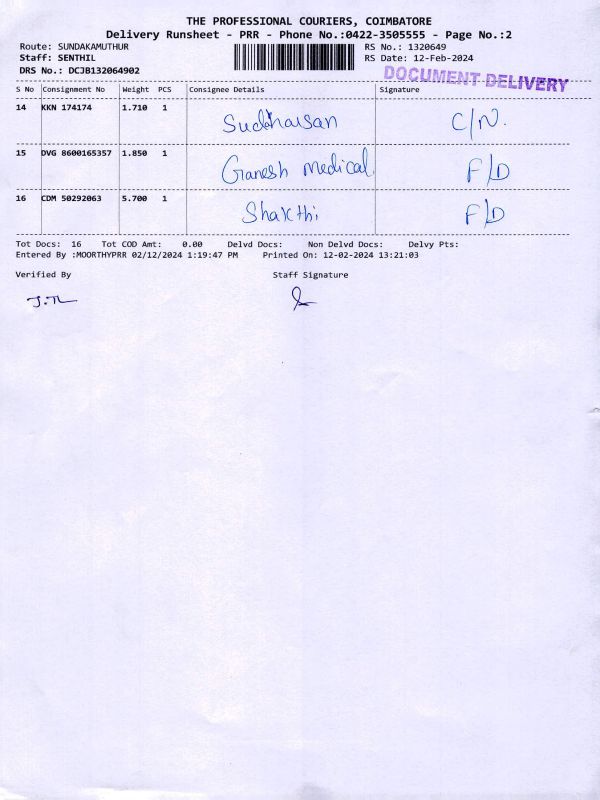 THE PROFESSIONAL COURIERS, COIMBATORE
Delivery Runsheet - PRR - Phone No.:0422-3505555 - Page No.:2
Route: SUNDAKAMUTHUR RS No.: 1320649
Staff: SENTHIL RS Date: 12-Feb-2024
DRS No.: DCJB132064902 DOCUMENT DELIVERY
S No Consignment No Weight PCS Consignee Details Signature
14 KKN 174174 1.710 1 Sudharsan C/N.
15 DVG 8600165357 1.850 1 Ganesh Medical F/D
16 CDM 50292063 5.700 1 Shakthi F/D
Tot Docs: 16 Tot COD Amt: 0.00 Delvd Docs: Non Delvd Docs: Delvy Pts:
Entered By :MOORTHYPRR 02/12/2024 1:19:47 PM Printed On: 12-02-2024 13:21:03
Verified By Staff Signature